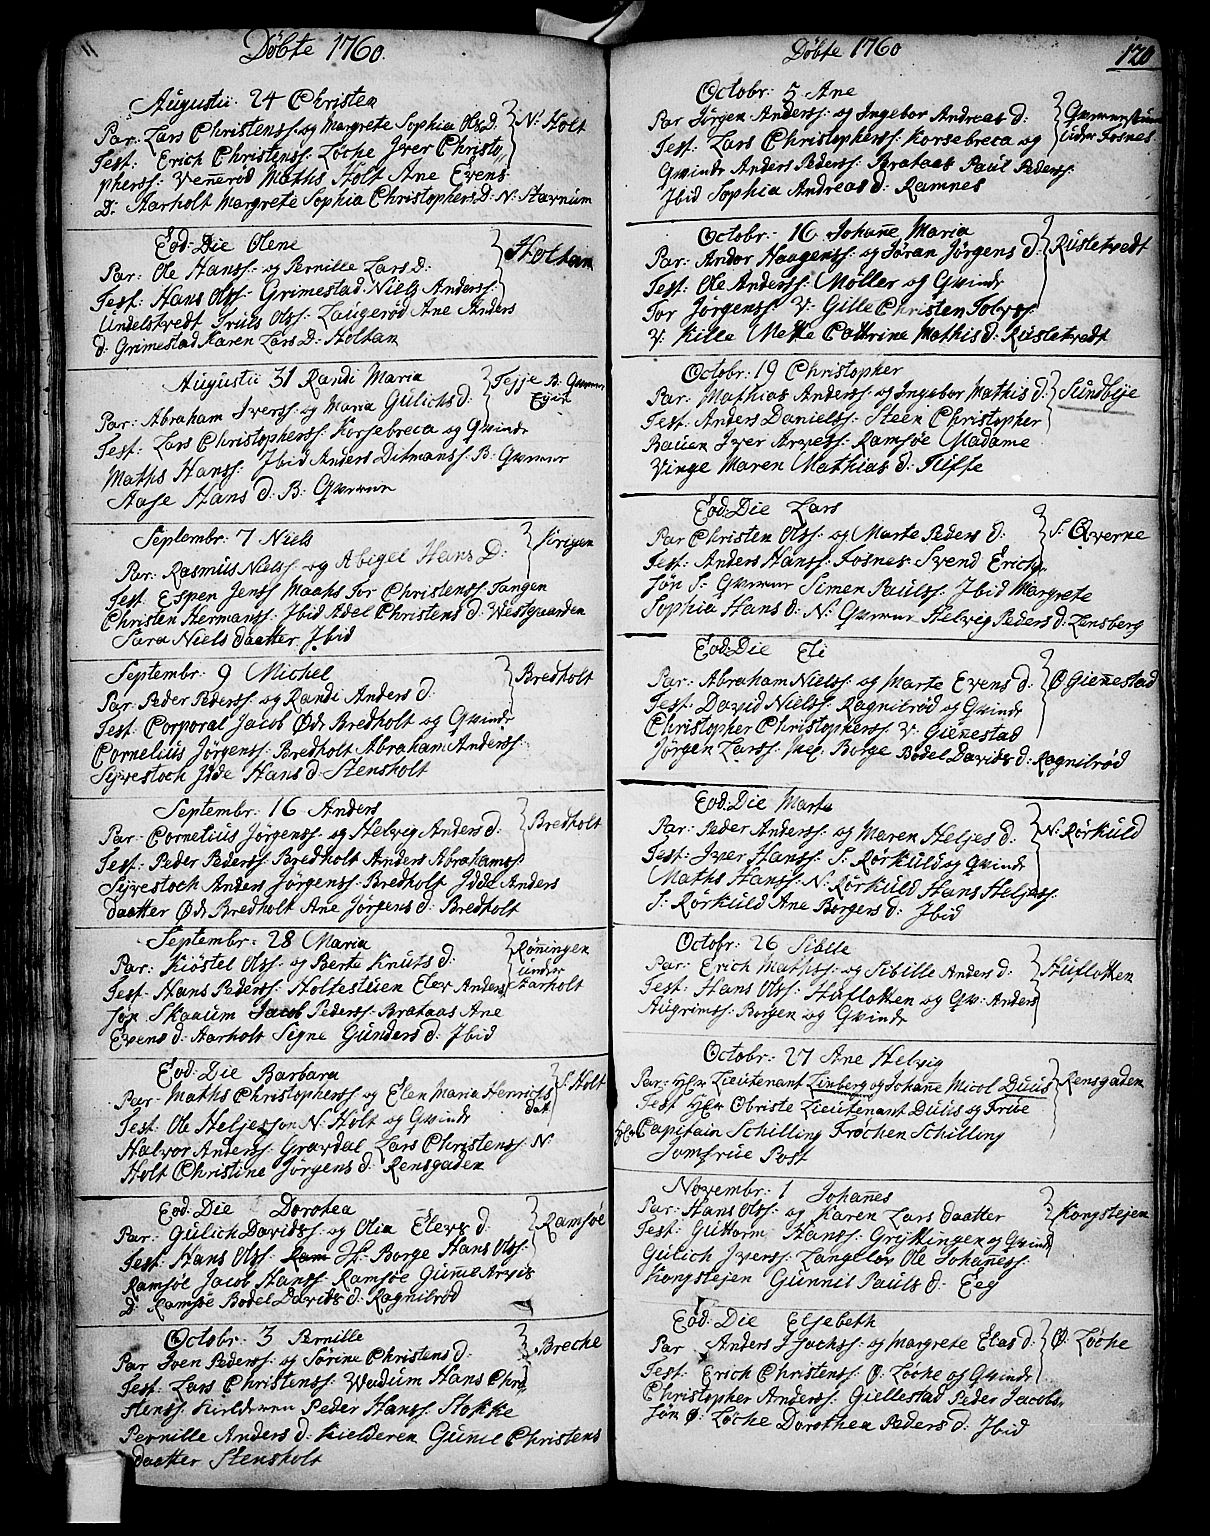 11
Döbte 1760.
Augustii. 24 Christen
Par: Lars Christenss: og Margrete Sophia Ols D. N: Holt
Test: Erich Christenss: Löche Jver Christo,,
pherss: Venneröd Maths Holt Ane Evens
D: Aarholt Margrete Sophia Christophers D: N: Stavnum
Eod: Die Oleni
Par: Ole Hanss: og Pernille Lars D: Holtan
Test: Hans Olss: Grimestad Niels Anderss:
Undelstvedt Truls Olss: Laugeröd Ane Anders
d: Grimestad Karen Lars D: Holtan
Augustii 31 Randi Maria
Par: Abraham Jverss: og Maria Gulichs d: Tejje B: Qvernr Ejet
Test: Lars Christopherss: Korsebreca og Qvinde
Maths Hanss: Jbid Anders Ditmanss: B: Qvernr
Aase Hans d: B: Qvernr
Septembr: 7 Niels
Par: Rasmus Nielss: og Abigel Hans D: Krigen
Test: Espen Jenss Maahs Tor Christenss: Tangen
Christen Hermanss: Jbid Abel Christens d: Westgaarden
Sara Niels daatter Jbid
Septembr: 9 Michel
Par: Peder Pederss: og Randi Anders d: Bredholt
Test: Corporal Jacob Ödr Bredholt og Qvinde
Cornelius Jörgenss: Bredholt Abraham Anderss:
Syvestoch Jdde Hans d: Stensholt
Septembr: 16 Anders
Par: Cornelius Jörgenss: og Helvig Anders d: Bredholt
Test: Peder Pederss: Bredholt Anders Abrahamss:
Syvestoch Anders Jörgenss: Bredholt Jdde Anders
daatter Ödr Bredholt Ane Jörgens d: Bredholt
Septembr: 28 Maria
Par: Kiöstel Olss: og Berte Knuts d: Röningen under Aarholt
Test: Hans Pederss: Holtestuen Elev Anders
Sön Skaaum Jacob Pederss: Brataas Ane
Evens d: Aarholt Signe Gunders d: Jbid
Eod: Die Barbara
Par: Maths Christopherss: og Elen Maria Henrichs dat. S: Holt
Test: Ole Heljesson N: Holt og Qvinde
Halvor Anderss: Gravdal Lars Christenss: N:
Holt Christine Jörgens d: Rensgaden
Eod: Die Dorotea
Par: Gulich Davidss: og Olia Elevs d: Ramsöe
Test: Hans Olss: Ram H: Borge Hans Olss:
Ramsöe Jacob Hanss: Ramsöe Gunnil Arvis
D: Ramsöe Bodel Davids d: Ragnilröd
Octobr: 3 Pernille
Par Iven Pederss: og Sörine Christens d: Breche
Test: Lars Christenss: Wadum Hans Chri
stenss: Kielderen Peder Hanss: Stokke
Pernille Anders d: Kielderen Gunnil Christens
daatter Stensholt
Döbte 1760
120
Octobr: 5 Ane
Par Jörgen Anderss: og Ingebor Andreas d: under Fosnes
Test: Lars Christopherss: Korsebreca og
Qvinde Anders Pederss: Brataas Paul Pederss:
Jbid Sophia Andreas d: Ramnes
Octobr: 16 Johanne Maria
Par: Andor Haagenss: og Jöran Jörgens d: Rustetvedt
Test: Ole Anderss: Möller og Qvinde
Tor Jörgenss: V: Gille Christen Tolvss
V: Kille Mette Cathrine Mathis d: Rustetvedt
Octobr: 19 Christopher
Par: Mathias Anderss: og Ingebor Mathis d: Sundbye
Test: Anders Danielss: Steen Christopher
Bauen Jver Arvess: Ramsöe Madame
Vinge Maren Mathias d: Fleffe
Eod: Die Lars
Par Christen Olss: og Marte Peders d: S: Qverne
Test: Anders Hanss: Fosnes Svend Erich,
Sön S: Qvernr Simen Paulss: Jbid Margrete
Sophia Hans d: N: Qvernr Helvig Peders d: Lensberg
Eod: Die Eli
Par: Abraham Nielss: og Marte Evens d: Ø Gienestad
Test: David Nielss: Ragnilröd og Qvinde
Christopher Christopherss: V: Gienestad
Jörgen Larss: Mel: Borge Bodel Davids d: Ragnilröd
Eod: Die Marte
Par: Peder Anderss: og Maren Heljes d: N: Rörkuld
Test: Jver Hanss: S: Rörkuld og Qvinde
Maths Hanss: N: Rörkuld Hans Heljess:
S: Rörkuld Ane Borgers d: Jbid
Octobr: 26 Sibille
Par: Erich Mathss: og Sibille Anders d: Huflotten
Test: Hans Olss: Huflotten og Qv: Anders
Augrimss: Borgen og Qvinde
Octobr: 27 Ane Helvig
Par: Hr Lieutenant Linberg og Johanne Micol Duus Rensgaden
Test Hr Obriste Lieutenant Duus og Frue
Hr Capitain Schilling Fröchen Schilling
Jomfrue Post
Novembr: 1 Johanes
Par: Hans Olss: og Karen Lars daatter Kongstejen
Test: Guttorm Hanss: Gryttingen og Qvinde
Gulich Jverss: Langllov Ole Johaness:
Kongstejen Gunnil Pauls d: Eeg
Eod: Die Elsebeth
Par Anders Jsachss: og Margrete Elas d: Ø: Löche
Test: Erich Christenss: Ø: Löche og Qvinde
Christopher Anderss: Giellestad Peder Jacobs,
Sön Ø: Löche Dorothea Peders d: Jbid